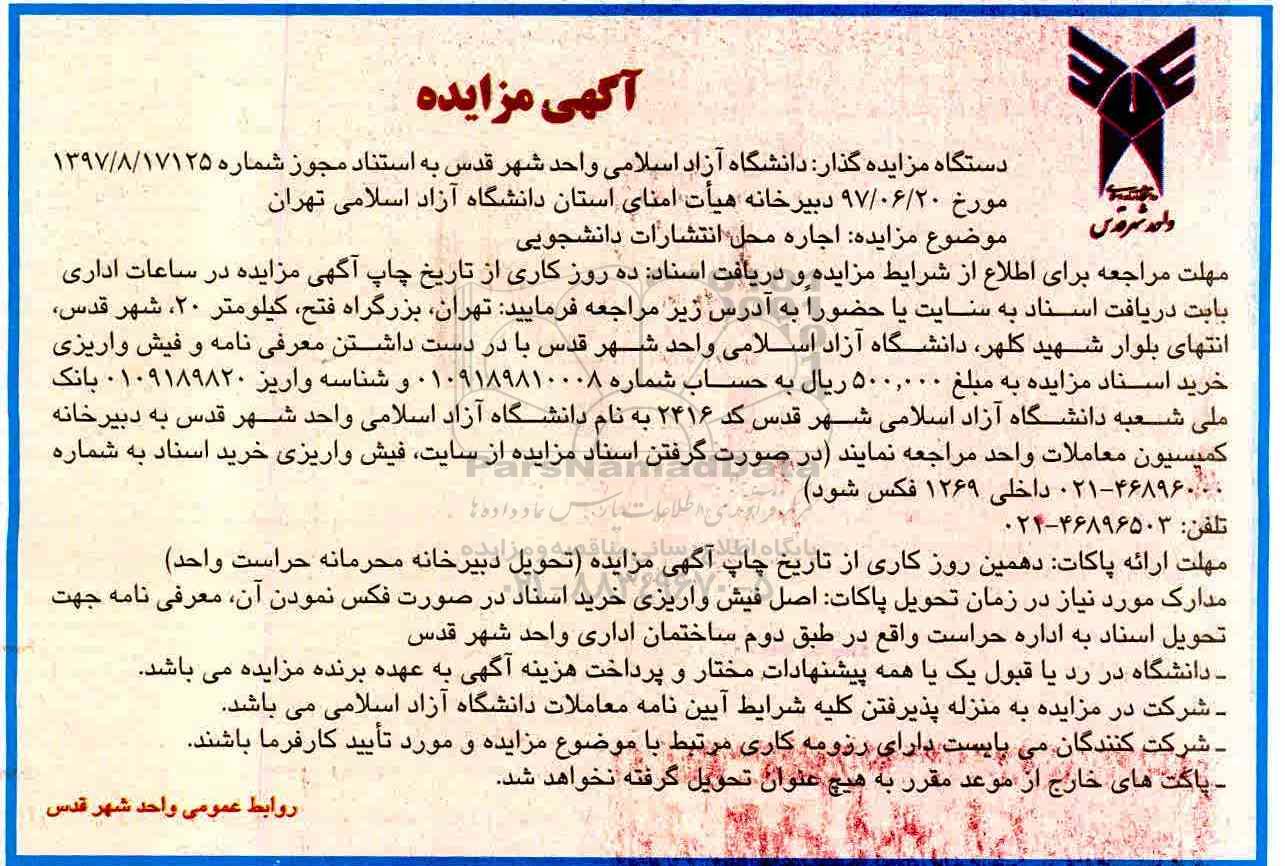 آگهی مزایده
دستگاه مزایده گذار: دانشگاه آزاد اسلامی واحد شهر قدس به استناد مجوز شماره ۱۳۹۷/۸/۱۷۱۲۵
مورخ ۹۷/۰۶/۲۰ دبیرخانه هیأت امنای استان دانشگاه آزاد اسلامی تهران
موضوع مزایده: اجاره محل انتشارات دانشجویی
واحد شهر قدس
مهلت مراجعه برای اطلاع از شرایط مزایده و دریافت اسناد: ده روز کاری از تاریخ چاپ آگهی مزایده در ساعات اداری
بابت دریافت اسناد به سایت یا حضوراً به آدرس زیر مراجعه فرمایید: تهران، بزرگراه فتح، کیلومتر ۲۰، شهر قدس،
انتهای بلوار شهید کلهر، دانشگاه آزاد اسلامی واحد شهر قدس با در دست داشتن معرفی نامه و فیش واریزی
خرید اسناد مزایده به مبلغ ۵۰۰,۰۰۰ ریال به حساب شماره ۰۱۰۹۱۸۹۸۱۰۰۰۸ و شناسه واریز ۰۱۰۹۱۸۹۸۲۰ بانک
ملی شعبه دانشگاه آزاد اسلامی شهر قدس کد ۲۴۱۶ به نام دانشگاه آزاد اسلامی واحد شهر قدس به دبیرخانه
کمیسیون معاملات واحد مراجعه نمایند (در صورت گرفتن اسناد مزایده از سایت، فیش واریزی خرید اسناد به شماره
۰۲۱-۴۶۸۹۶۰۰۰ داخلی ۱۲۶۹ فکس شود)
تلفن: ۰۲۱-۴۶۸۹۶۵۰۳
مهلت ارائه پاکات: دهمین روز کاری از تاریخ چاپ آگهی مزایده (تحویل دبیرخانه محرمانه حراست واحد)
مدارک مورد نیاز در زمان تحویل پاکات: اصل فیش واریزی خرید اسناد در صورت فکس نمودن آن، معرفی نامه جهت
تحویل اسناد به اداره حراست واقع در طبق دوم ساختمان اداری واحد شهر قدس
ـ دانشگاه در رد یا قبول یک یا همه پیشنهادات مختار و پرداخت هزینه آگهی به عهده برنده مزایده می باشد.
ـ شرکت در مزایده به منزله پذیرفتن کلیه شرایط آیین نامه معاملات دانشگاه آزاد اسلامی می باشد.
ـ شرکت کنندگان می بایست دارای رزومه کاری مرتبط با موضوع مزایده و مورد تأیید کارفرما باشند.
ـ پاکت های خارج از موعد مقرر به هیچ عنوان تحویل گرفته نخواهد شد.
روابط عمومی واحد شهر قدس
ParsNamadData
پایگاه اطلاع رسانی مناقصه و مزایده